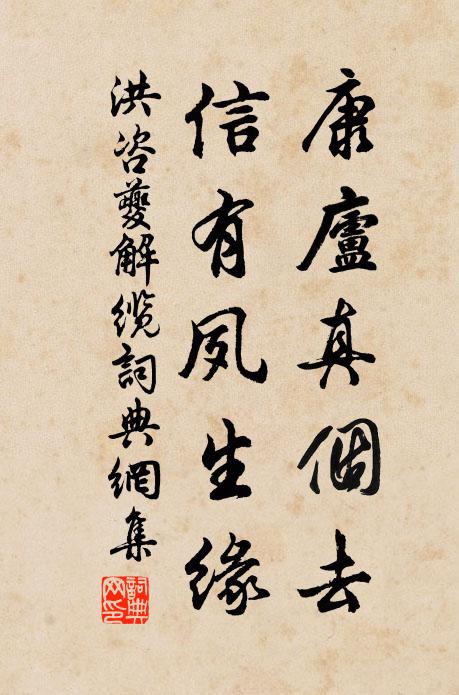 康廬真個去
信有夙生緣
洪咨夔解纜詞典網集
詞典网印